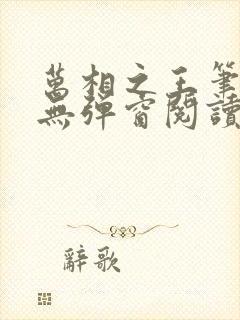 萬相之王筆
無彈窗閱讀
辭歌